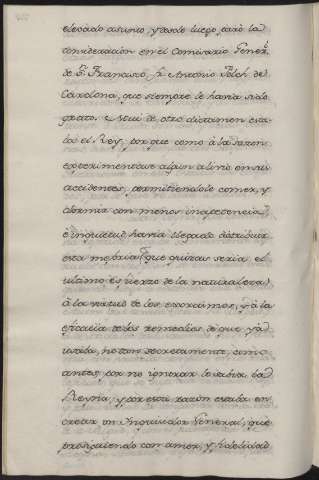 elevado asunto, y desde luego, paró la
consideracion en el Comisario Gener.^l
de S.^n Francisco, fr. Antonio Folch de
Cardona, que siempre le havia sido
grato. Mui de otro dictamen esta-
ba el Rey, porque como à la sazon
experimentase algun alivio en sus
accidentes, permitiendole comer, y
dormir con menos inapetencia,
è inquietud havia llegado à atribuir
esta mejoria (que quizas seria el
ultimo esfuerzo de la naturaleza)
à la virtud de los exorcismos, y à la
eficacia de los remedios de que yá
usaba, no tan secretamente, como
antes, por no ignorar lo sabia la
Reyna, y por esta razon estaba en
crear un Inquisidor General, que
prosiguiendo con amor, y fidelidad